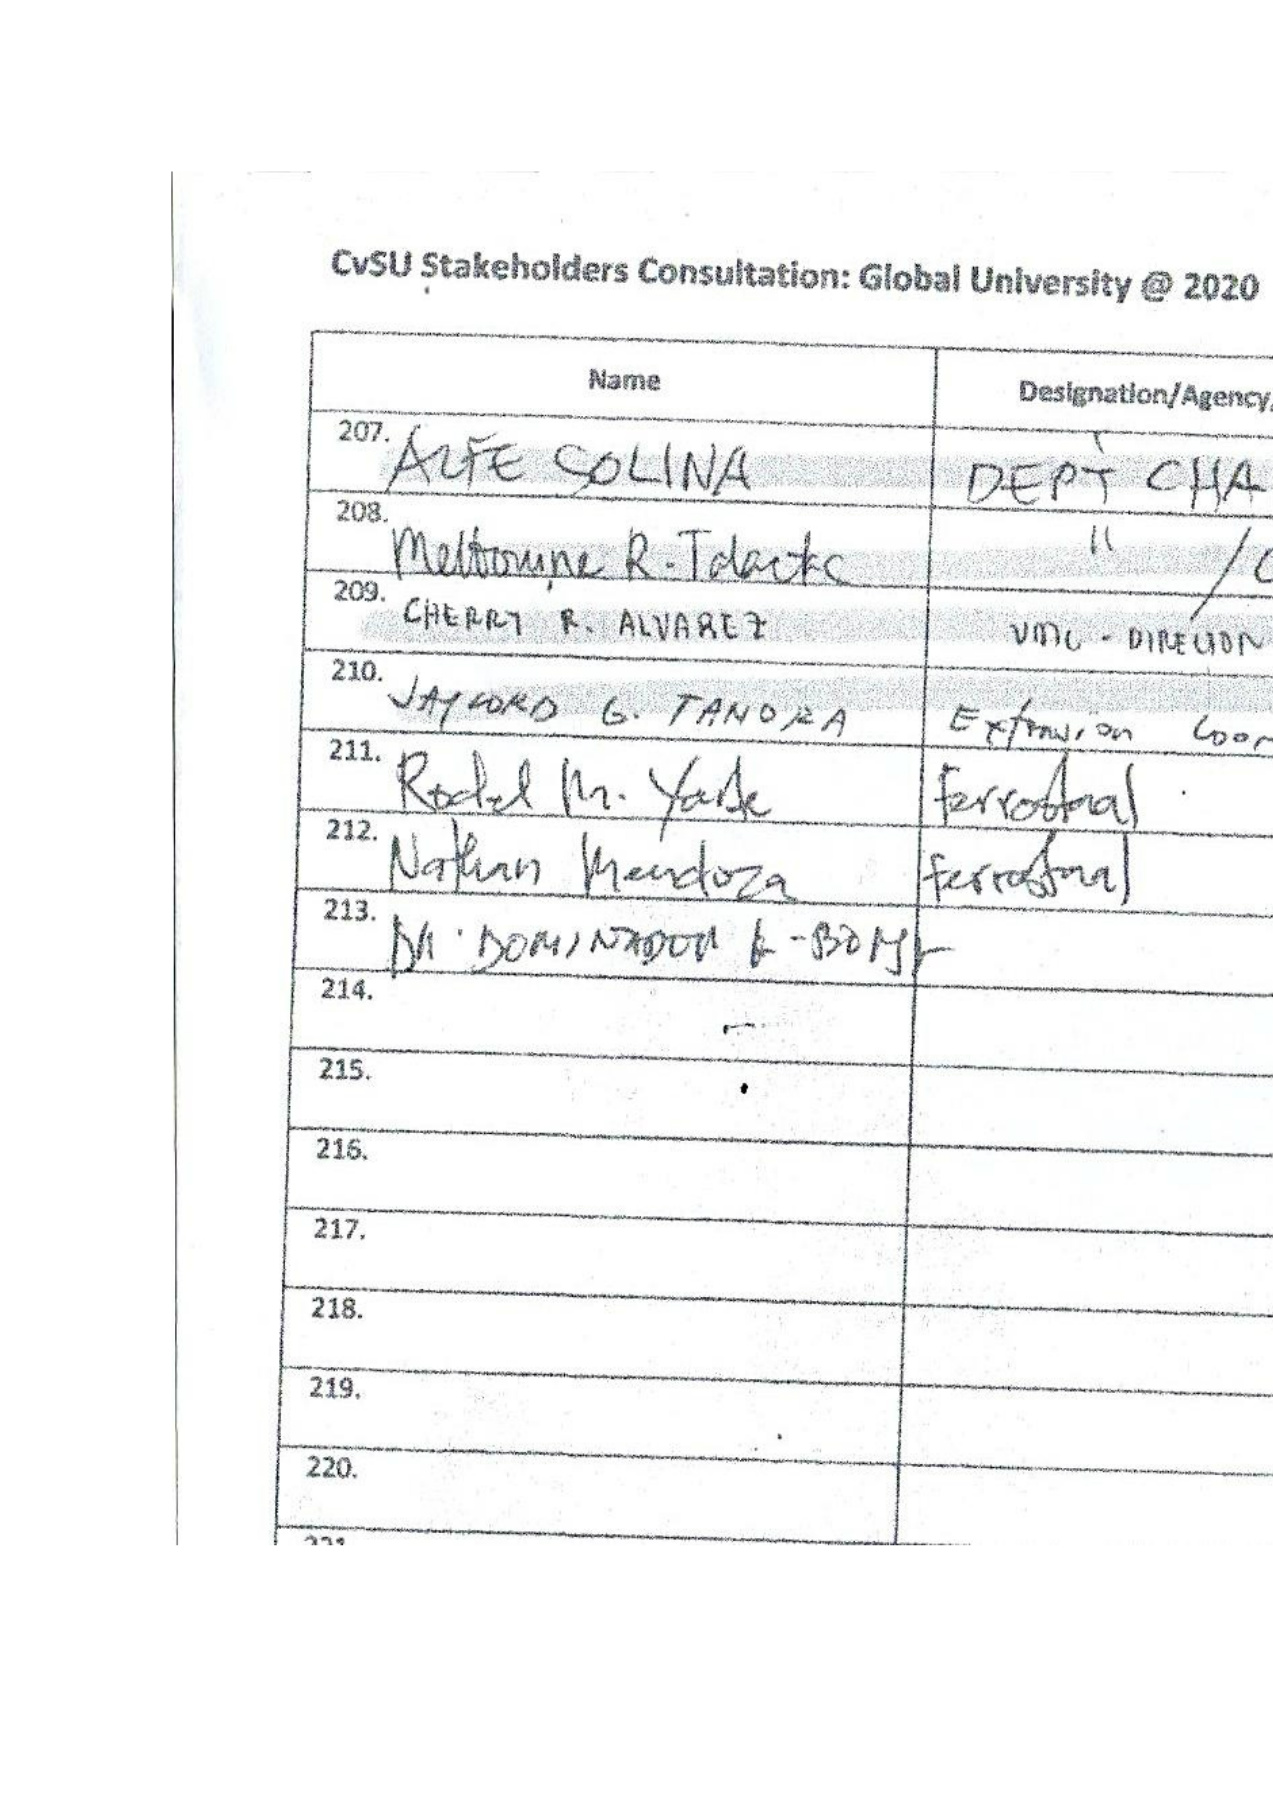 CvSU Stakeholders Consultation: Global University @ 2020
Name Designation/Agency
207. ALFE SOLINA DEPT CHA
208. Melbourne R. " /C
209. CHERRY R. ALVAREZ VMC - DIRECTOR
210. JAYLORD G. TANORA Extension Coor
211. Rodel M. Ferrostaal
212. Nathan Mendoza Ferrostaal
213. DR. DOMINADOR
214.
215.
216.
217.
218.
219.
220.
221